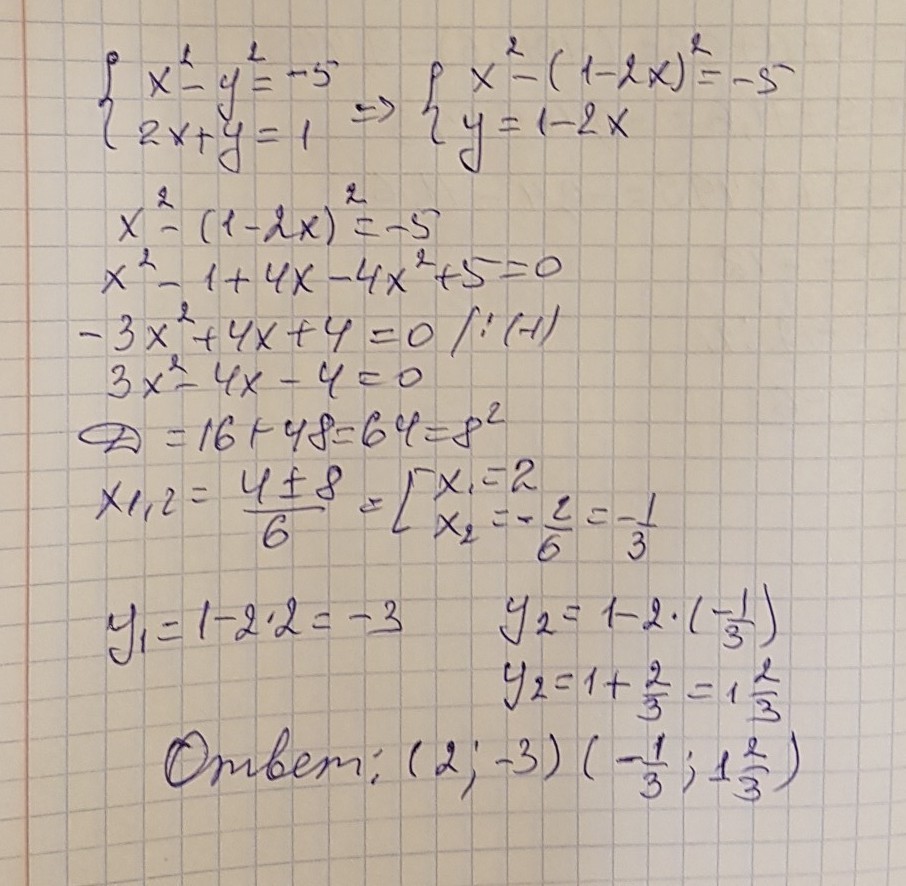 { x² - y² = -5 => { x² - (1-2x)² = -5
{ 2x + y = 1 { y = 1-2x
x² - (1-2x)² = -5
x² - 1 + 4x - 4x² + 5 = 0
-3x² + 4x + 4 = 0 /:(-1)
3x² - 4x - 4 = 0
D = 16 + 48 = 64 = 8²
x1,2 = (4±8)/6 = [ x₁ = 2
x₂ = -2/6 = -1/3
y₁ = 1-2·2 = -3 y₂ = 1-2·(-1/3)
y₂ = 1 + 2/3 = 1 2/3
Ответ: (2; -3) (-1/3; 1 2/3)